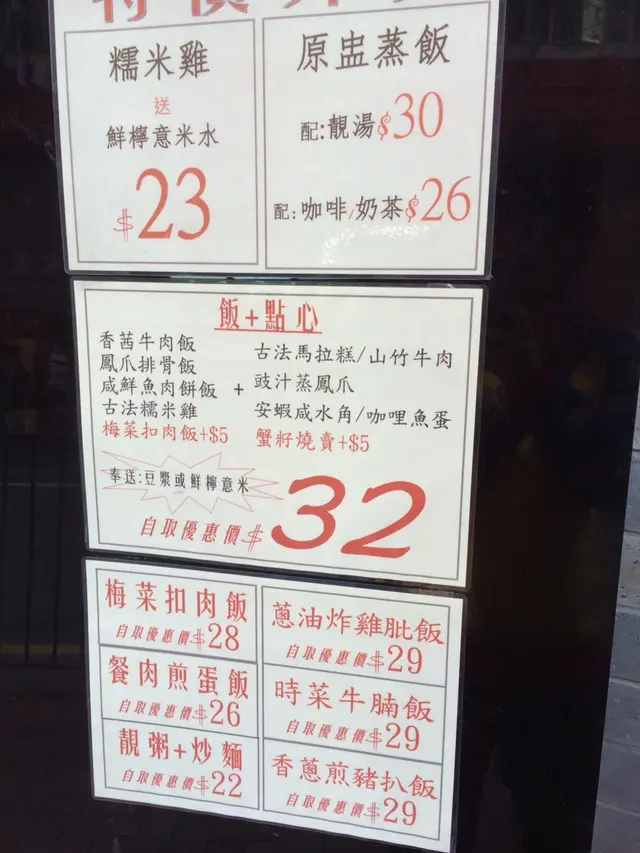 糯米雞
送
鮮檸意米水
$23
原盅蒸飯
配:靚湯$30
配:咖啡/奶茶$26
飯+點心
香茜牛肉飯
鳳爪排骨飯
咸鮮魚肉餅飯
古法糯米雞
梅菜扣肉飯+$5
+
古法馬拉糕/山竹牛肉
豉汁蒸鳳爪
安蝦咸水角/咖哩魚蛋
蟹籽燒賣+$5
奉送:豆漿或鮮檸意米
自取優惠價$32
梅菜扣肉飯
自取優惠價$28
餐肉煎蛋飯
自取優惠價$26
靚粥+炒麵
自取優惠價$22
蔥油炸雞肶飯
自取優惠價$29
時菜牛腩飯
自取優惠價$29
香蔥煎豬扒飯
自取優惠價$29